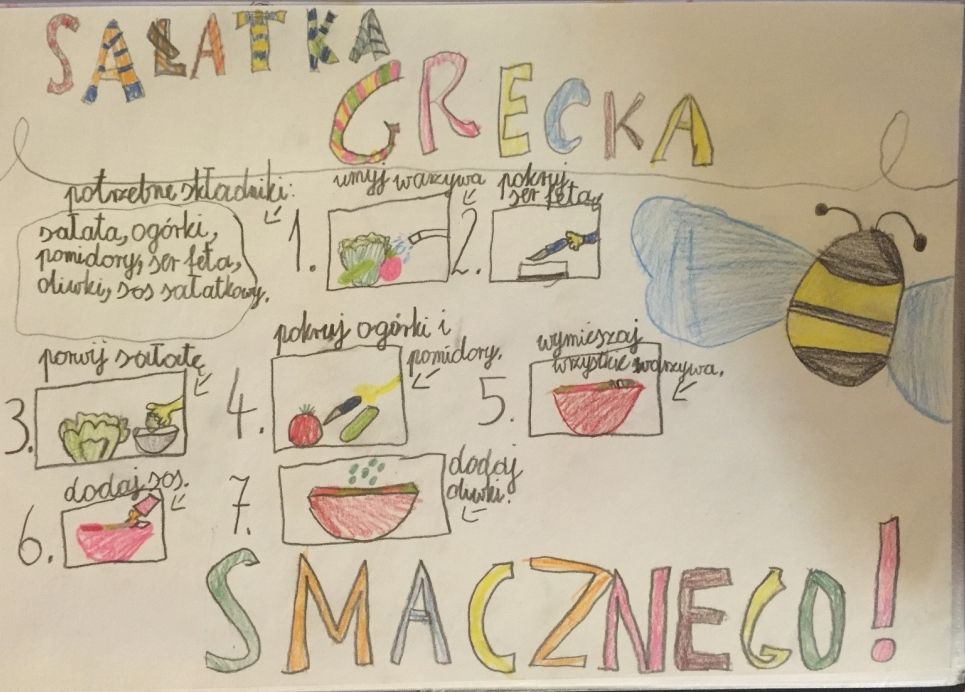 SAŁATKA
GRECKA
potrzebne składniki:
sałata, ogórki,
pomidory, ser feta,
oliwki, sos sałatkowy.
1.
umyj warzywa
2.
pokruj
ser feta
3.
porwij sałatę
4.
pokruj ogórki i
pomidory.
5.
wymieszaj
wszystkie warzywa.
6.
dodaj sos.
7.
dodaj
oliwki.
SMACZNEGO!